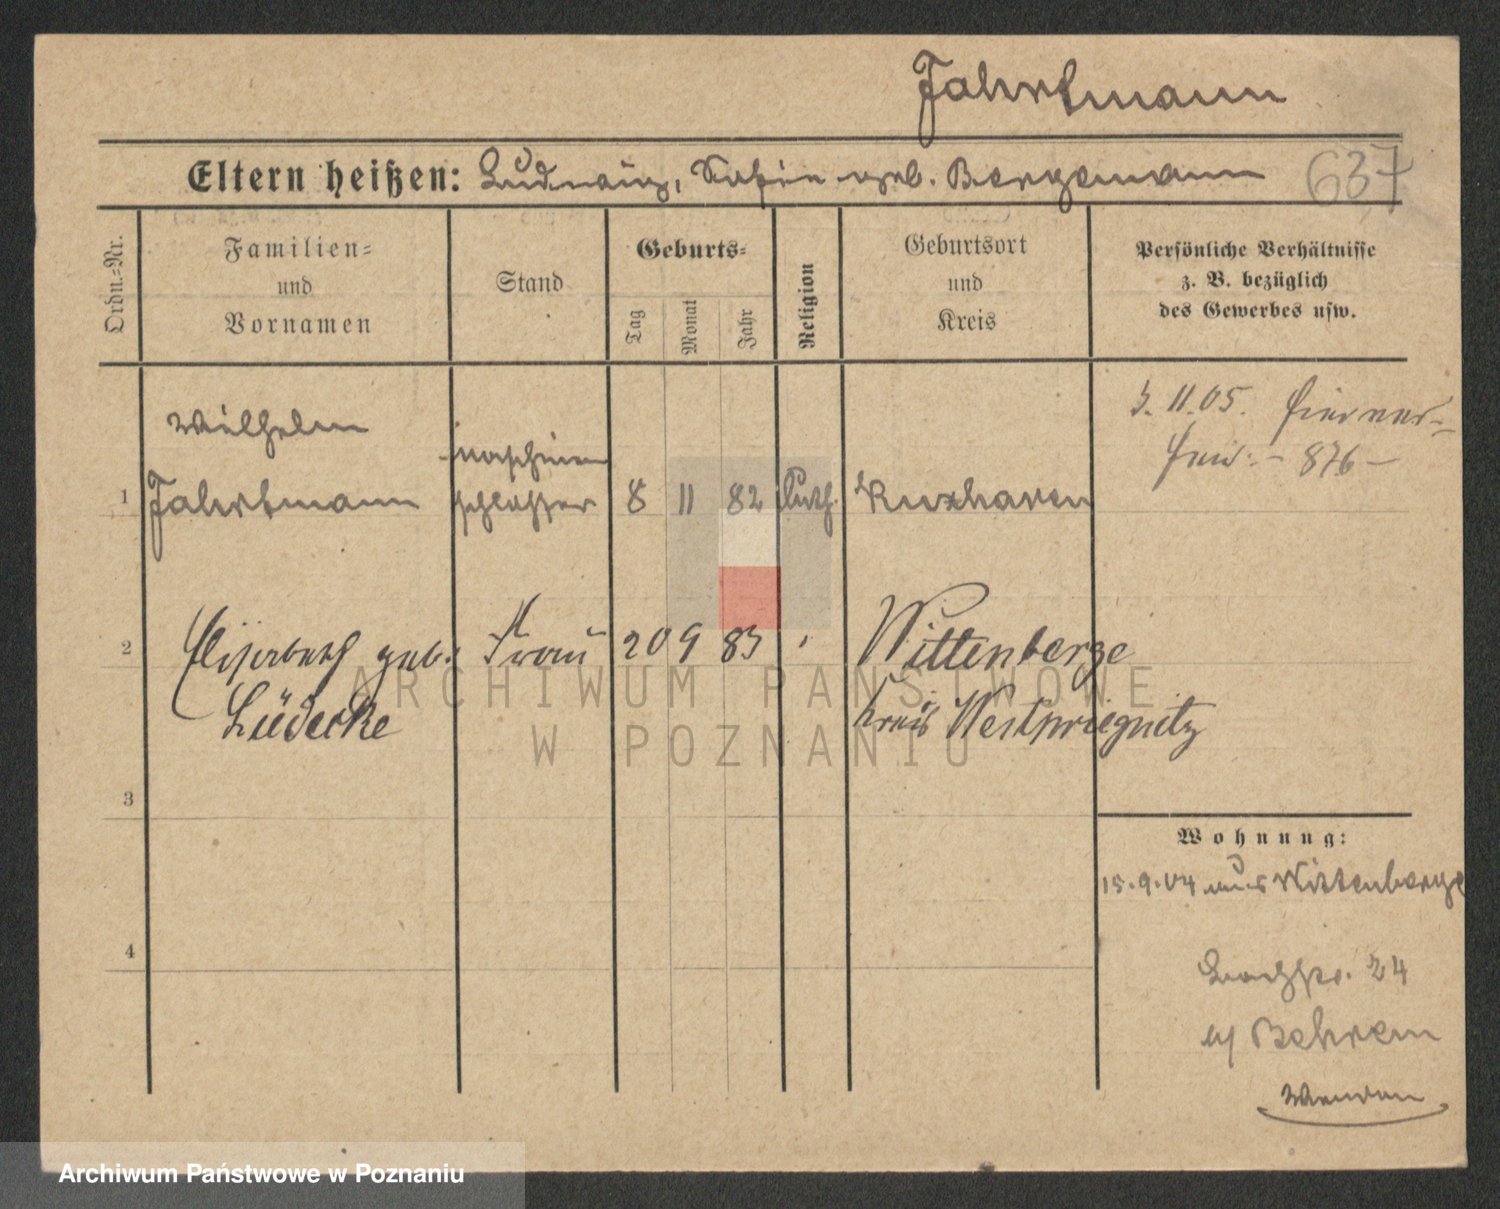 Fahrtmann
Eltern heißen: Ludwig, Sofie geb. Bergemann
637
Ordn.-Nr.
Familien- und Vornamen
Stand
Geburts-
Tag
Monat
Jahr
Religion
Geburtsort und Kreis
Persönliche Verhältnisse
z. B. bezüglich
des Gewerbes usw.
3. 11. 05.
876
Wilhelm
1 Fahrtmann
Maschinen
schlosser
8 11 82 Luth. Kuxhaven
2 Elisabeth geb. Frau 20 9 83 Wittenberge
Lüdecke
Kreis Westpriegnitz
3
4
Wohnung:
15.9.04 aus Wittenberge
24
b/ Behrem
Wenden
ARCHIWUM PAŃSTWOWE
W POZNANIU
Archiwum Państwowe w Poznaniu